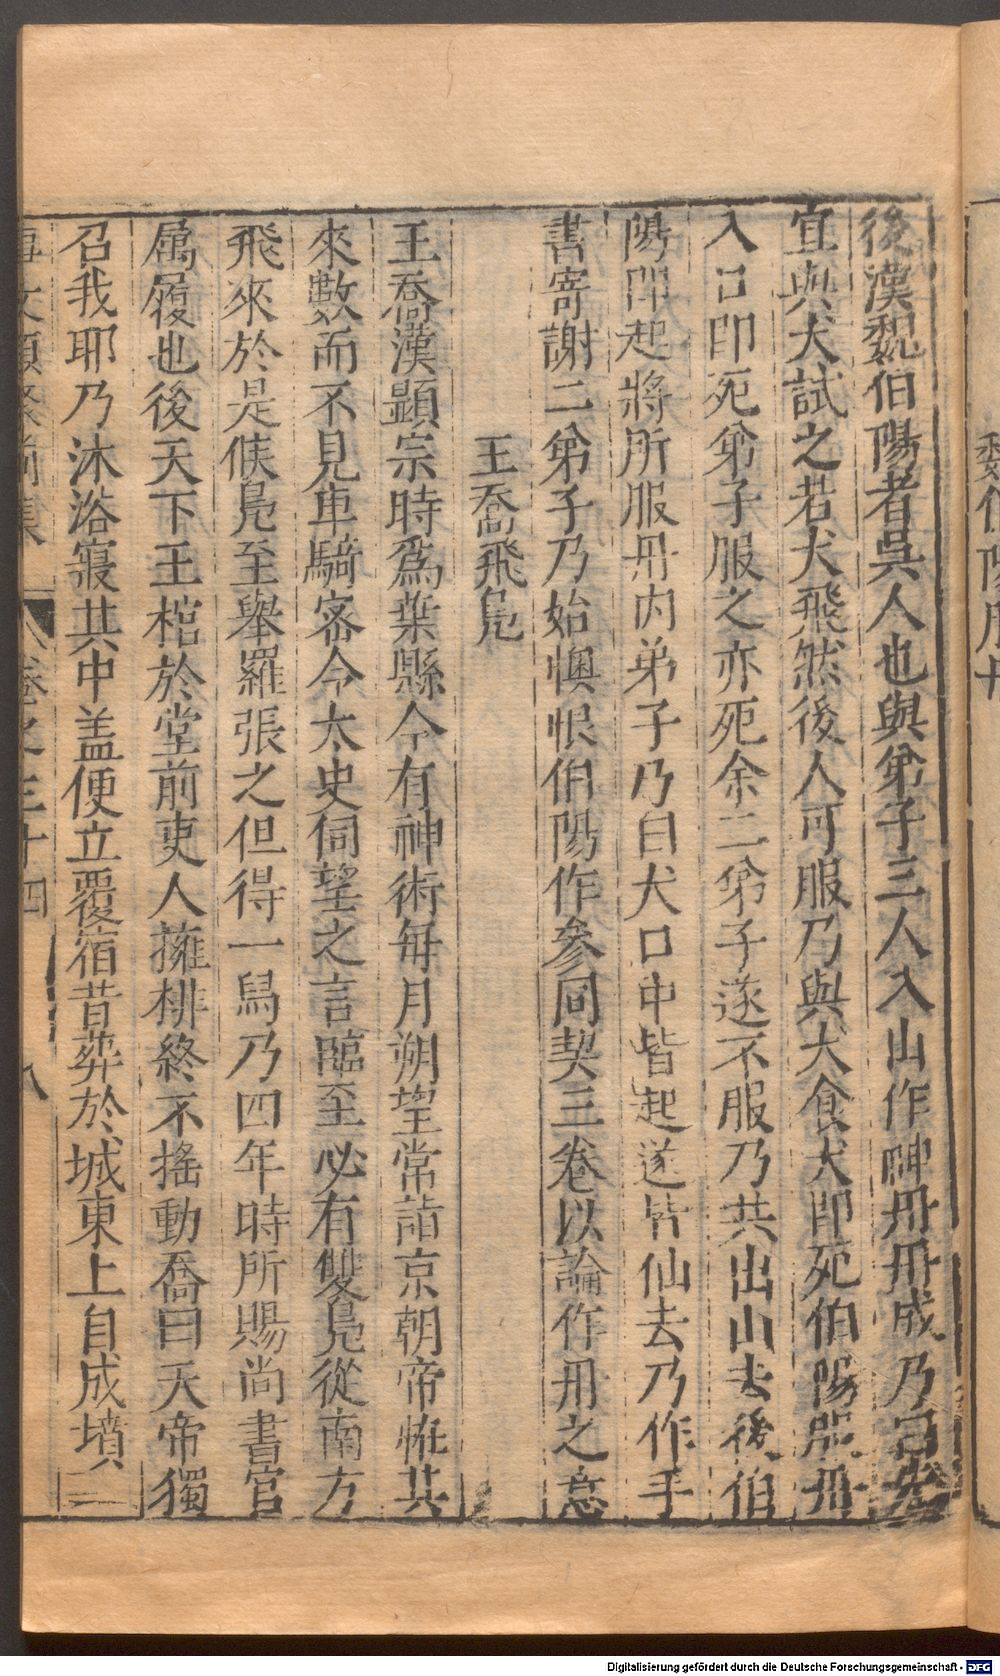 魏伯陽
後漢魏伯陽者吳人也與弟子三人入山作神丹丹成乃曰
宜與犬試之若犬飛然後人可服乃與犬食犬即死伯陽服丹
入口即死弟子服之亦死余二弟子遂不服乃共出山去後伯
陽即起將所服丹內弟子乃白犬口中皆起遂皆仙去乃作手
書寄謝二弟子乃始懊恨伯陽作參同契三卷以論作丹之意
王喬飛鳧
王喬漢顯宗時爲葉縣令有神術每月朔望常詣京朝帝恠其
來數而不見車騎密令太史伺望之言臨至必有雙鳧從南方
飛來於是候鳧至舉羅張之但得一舄乃四年時所賜尚書官
属履也後天下王棺於堂前吏人擁排終不搖動喬曰天帝獨
召我耶乃沐浴寢其中盖便立覆宿昔葬於城東上自成墳
事文類聚前集 卷之三十四 八
Digitalisierung gefördert durch die Deutsche Forschungsgemeinschaft - DFG